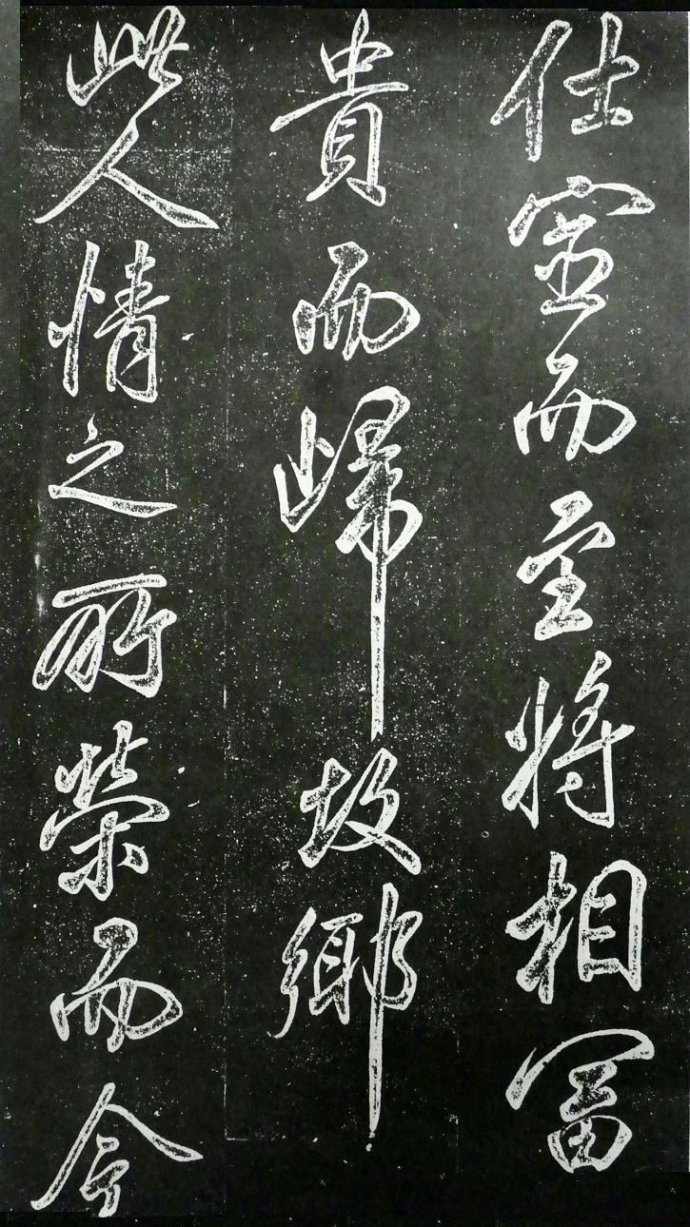 仕宦而至將相冨
貴而歸故鄉
此人情之所榮而今